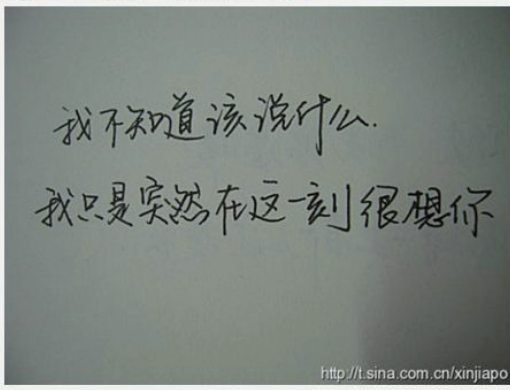 我不知道该说什么.
我只是突然在这一刻很想你
http://t.sina.com.cn/xinjiapo